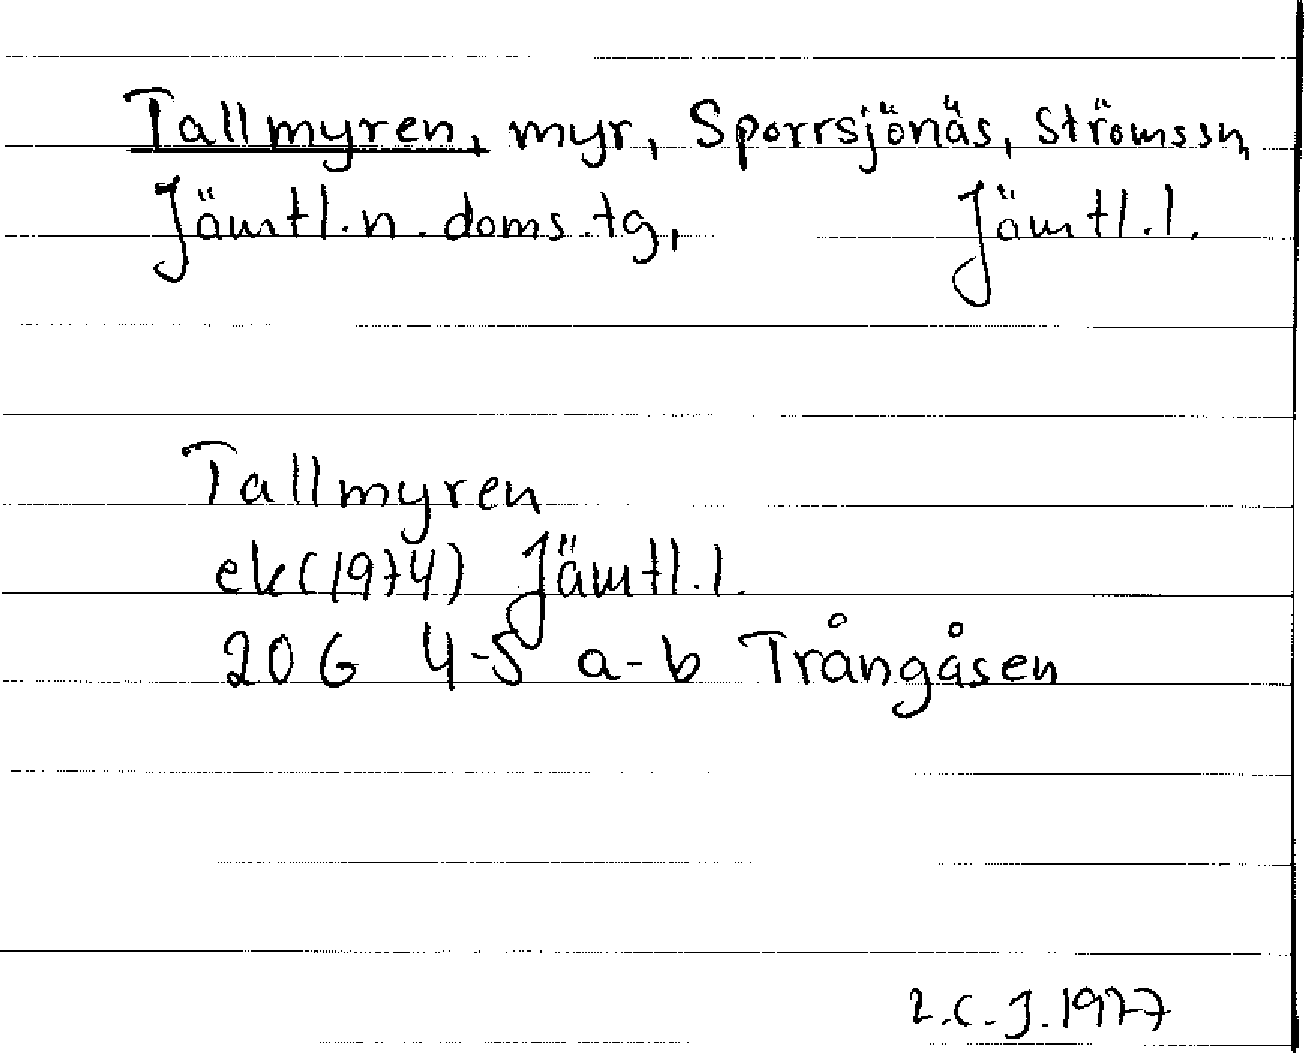 Tallmyren, myr, Sporrsjönäs, Ströms sn,
Jämtl. n. doms. tg, Jämtl. l.
Tallmyren
ek (1974) Jämtl. l.
20 G 4-5 a-b Trångåsen
L.C.J. 1977